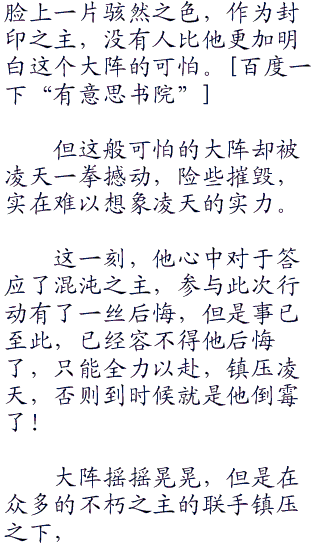 脸上一片骇然之色，作为封
印之主，没有人比他更加明
白这个大阵的可怕。[百度一
下“有意思书院”]
但这般可怕的大阵却被
凌天一拳撼动，险些摧毁，
实在难以想象凌天的实力。
这一刻，他心中对于答
应了混沌之主，参与此次行
动有了一丝后悔，但是事已
至此，已经容不得他后悔
了，只能全力以赴，镇压凌
天，否则到时候就是他倒霉
了！
大阵摇摇晃晃，但是在
众多的不朽之主的联手镇压
之下，